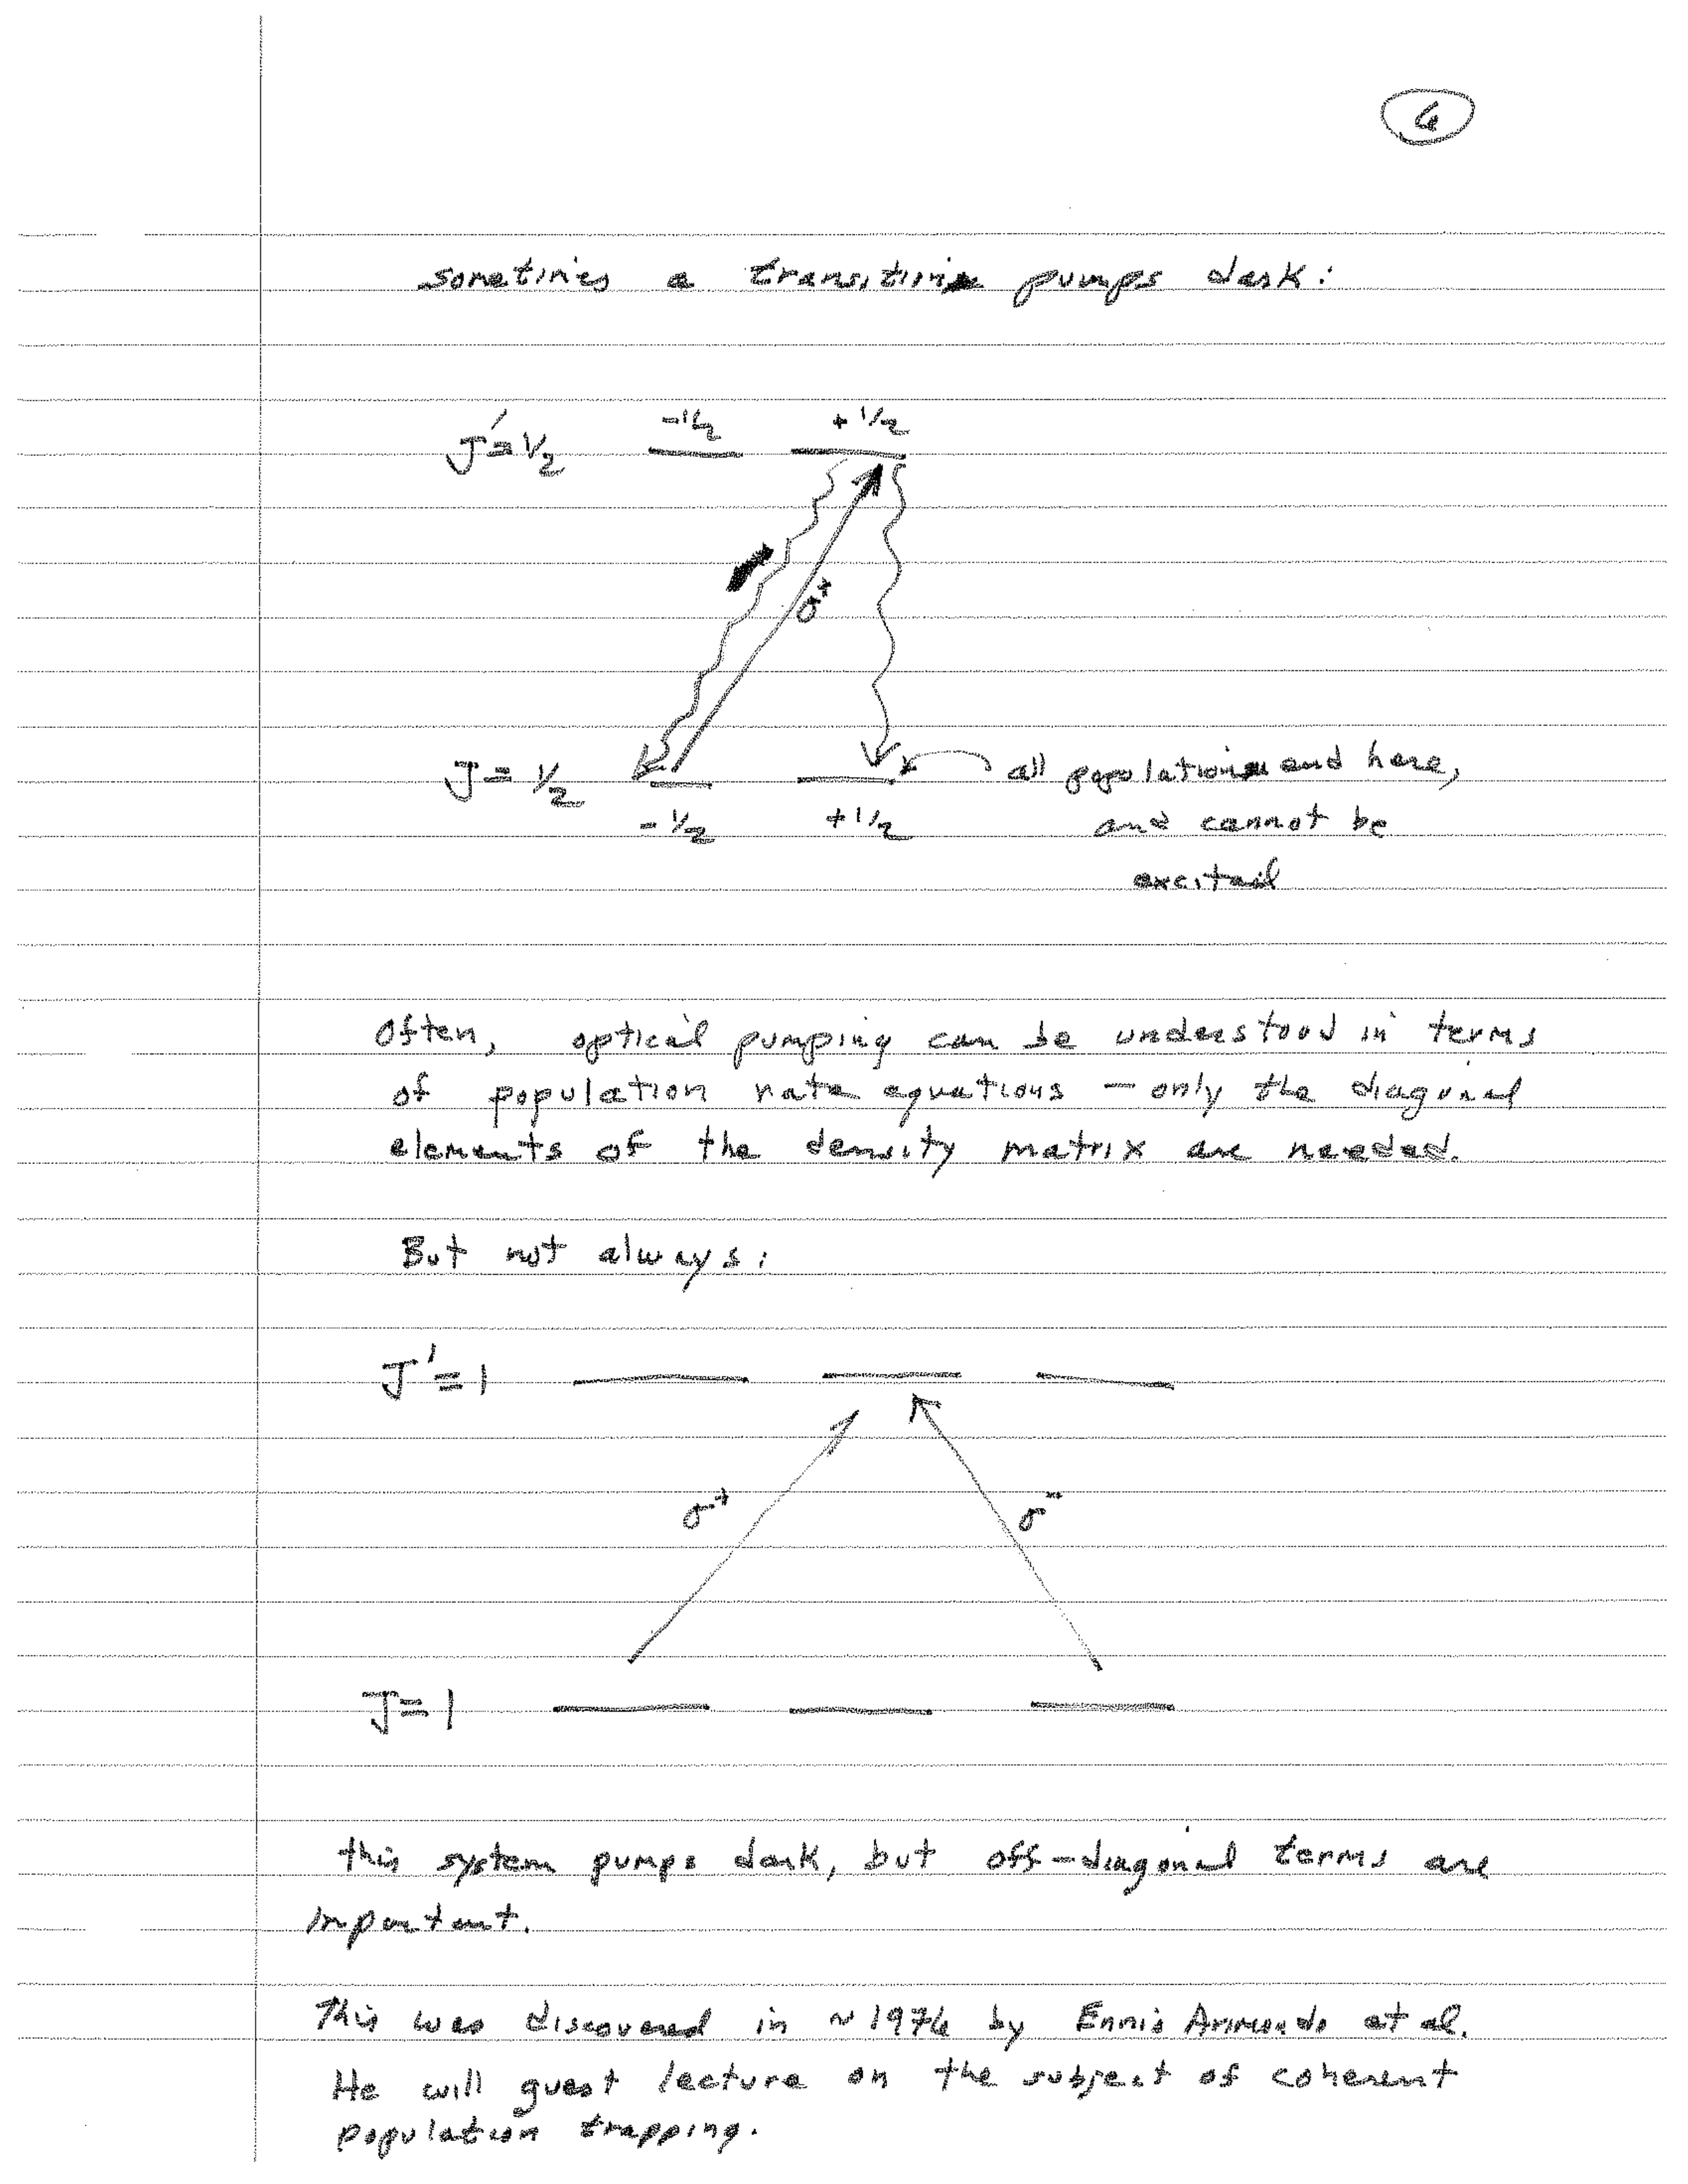 6
sometimes a transition pumps dark:
J′=1/2 -1/2 +1/2
σ+
J=1/2
-1/2 +1/2
all population end here,
and cannot be
excited
Often, optical pumping can be understood in terms
of population rate equations — only the diagonal
elements of the density matrix are needed.
But not always:
J′=1
σ+ σ-
J=1
this system pumps dark, but off-diagonal terms are
important.
This was discovered in ~1976 by Ennio Arimondo et al.
He will guest lecture on the subject of coherent
population trapping.